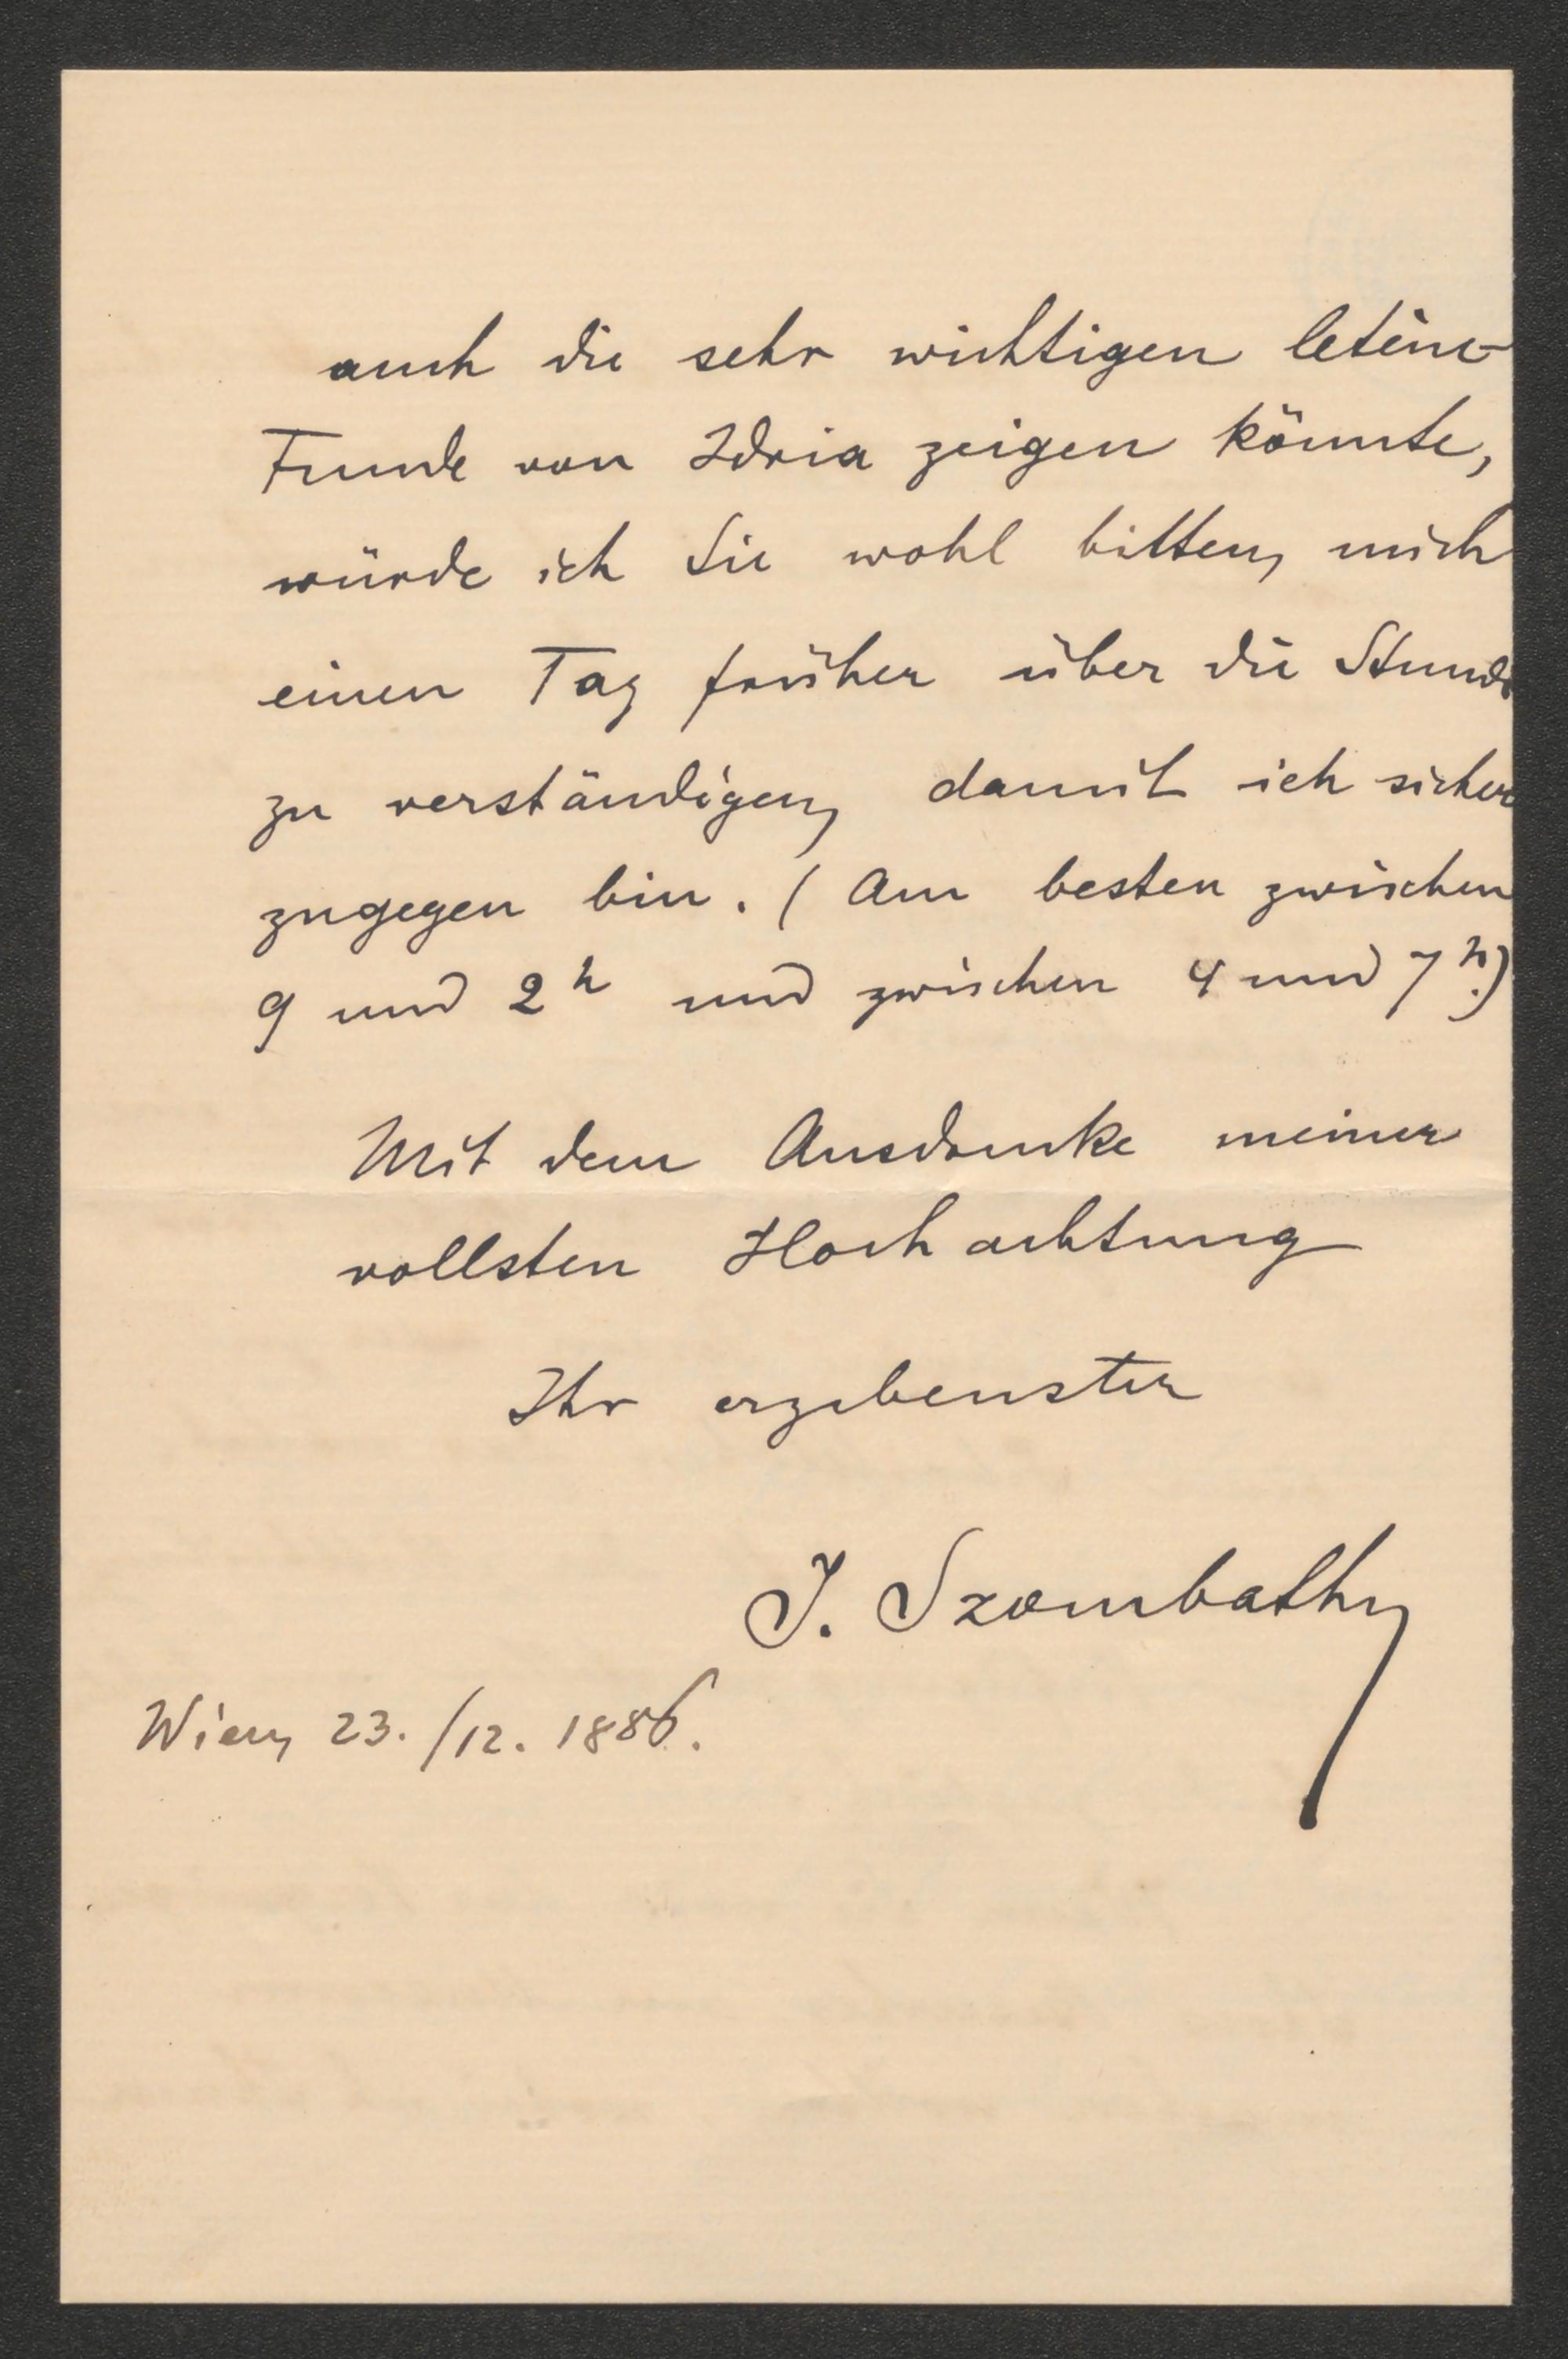 auch die sehr wichtigen letène-
Funde von Idria zeigen könnte,
würde ich Sie wohl bitten, mich
einen Tag früher über die Stunde
zu verständigen, damit ich sicher
zugegen bin. (Am besten zwischen
9 und 2h und zwischen 4 und 7h.)
Mit dem Ausdrucke meiner
vollsten Hochachtung
Ihr ergebenster
J. Szombathy
Wien, 23./12. 1886.